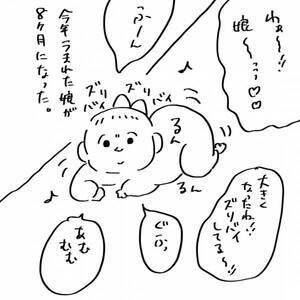 わぁ〜!!
娘〜っっ♡♡
うふーん
今年うまれた娘が
8ヶ月になった。
ズリバイ
ズリバイ
♪
るん
るん
♪
大きく
なったわ!!
ズリバイ
してる〜!!
ぐふっ
あむ
むむ